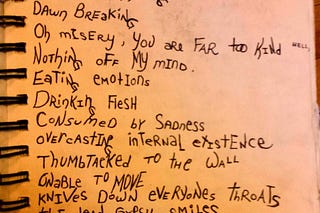 DAWN BREAKING
Oh misery, you are FAR too KiND well,
NothiNg oFF My MiND.
EatiNg emotions
DRiNkiN Flesh
CoNSuMED by SadNess
overCastiNg iNterNal existENCE
ThuMbTacked TO the WALL
UNable TO MOVE
KNiVES DOWN EVERYONES THROATS
smiles